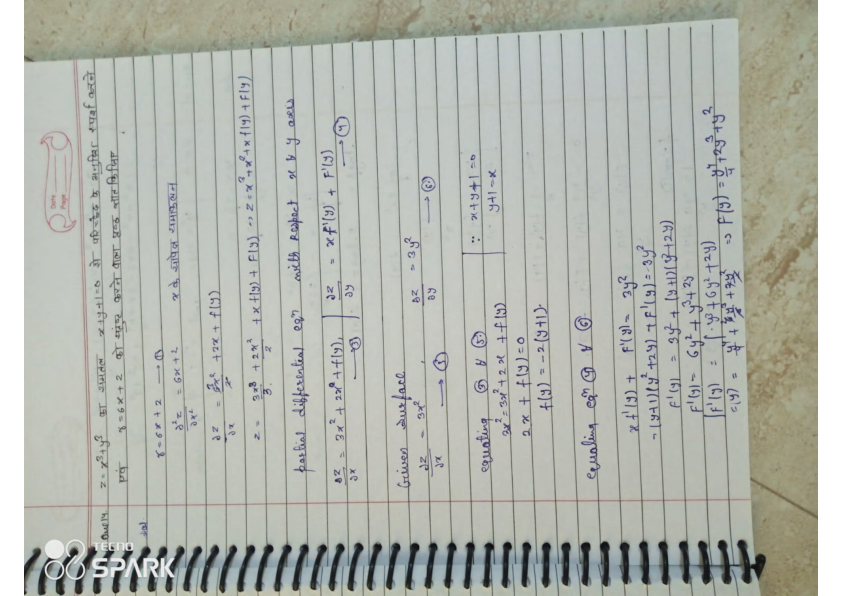 Que14. z=x³+y³ का समतल x+y+1=0 से परिच्छेद के अनुदिश स्पर्श करने
एवं r=6x+2 को संतुष्ट करने वाला पृष्ठ ज्ञात कीजिए
r=6x+2 → ①
∂²z/∂x² = 6x+2 x के सापेक्ष समाकलन
∂z/∂x = 6x²/2 + 2x + f(y)
z = 3x³/3 + 2x²/2 + xf(y) + F(y) => z=x³+x²+xf(y)+F(y)
partial differential eqn with respect x & y axis
∂z/∂x = 3x²+2x+f(y), → ③ ∂z/∂y = xf'(y) + F'(y) → ④
Given surface
∂z/∂x = 3x² → ⑤, ∂z/∂y = 3y² → ⑥
equating ③ & ⑤
3x²=3x²+2x+f(y) ∵ x+y+1=0
2x+f(y)=0 y+1=-x
f(y)=-2(y+1)
equaling eqn ④ & ⑥
xf'(y) + F'(y) = 3y²
-(y+1)(y²+2y)+F'(y)=3y²
F'(y) = 3y²+(y+1)(y²+2y)
F'(y)= 6y²+y³+2y
∫F'(y) = ∫y³+6y²+2y)
=(y) = y⁴/4 + 6y³/3 + 2y²/2 => F(y) = y⁴/4+2y³+y²
TECNO
SPARK